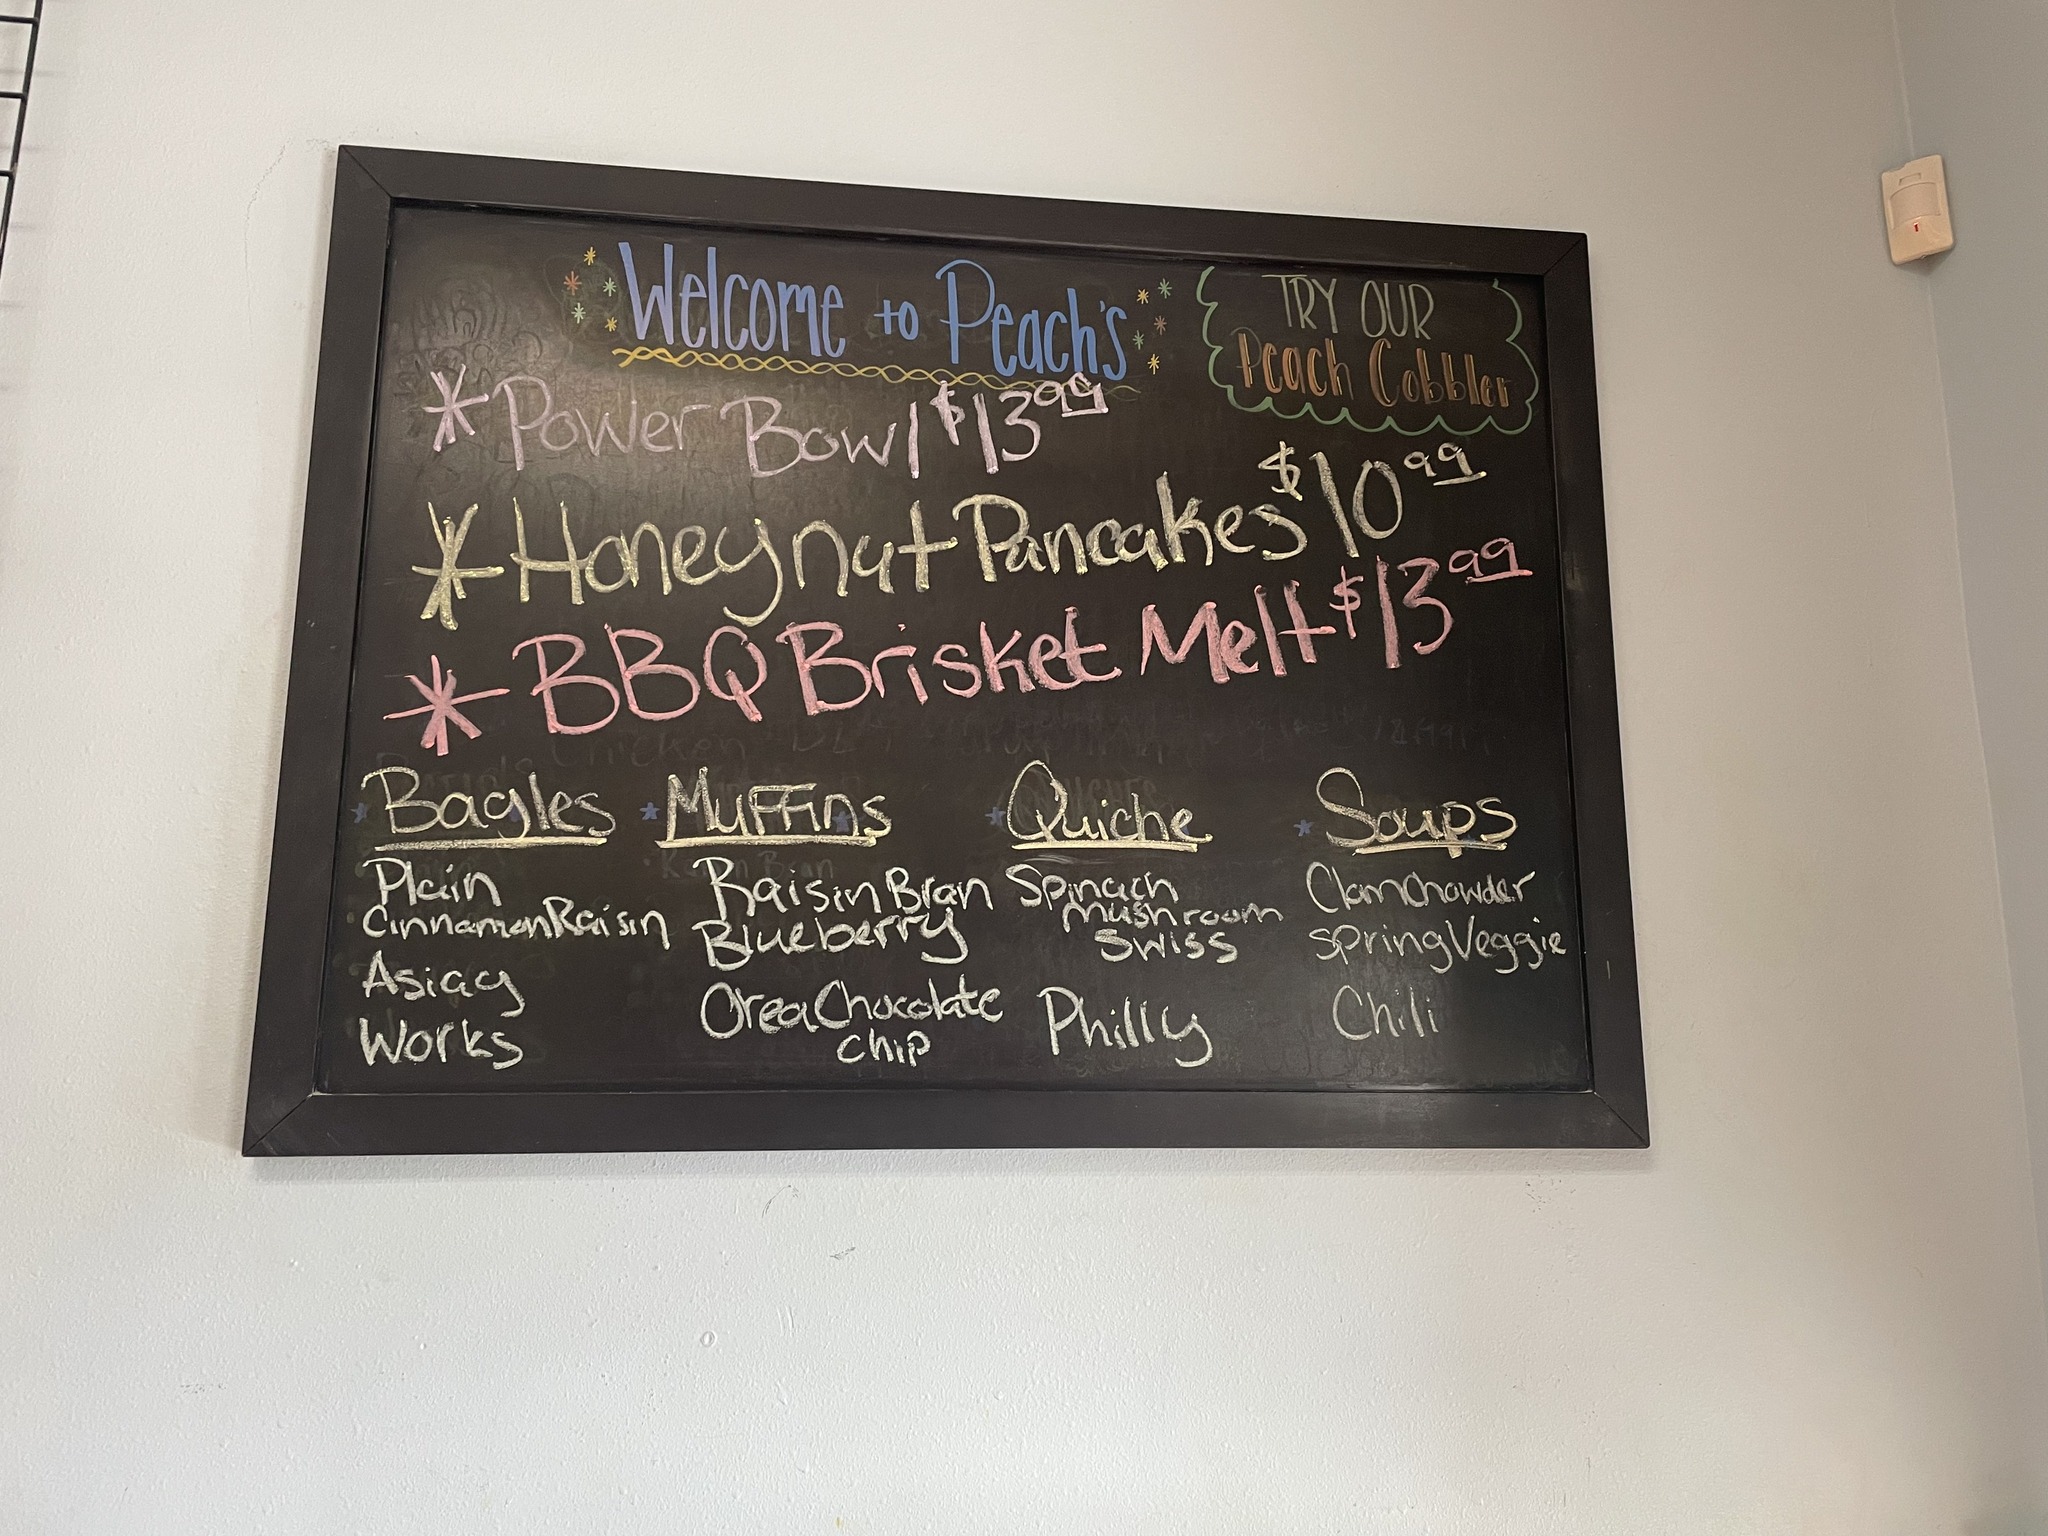 Welcome to Peach's
TRY OUR
Peach Cobbler
* Power Bowl $13.99
* Honeynut Pancakes $10.99
* BBQ Brisket Melt $13.99
Bagles
Plain
Cinnamon Raisin
Asiag
Works
Muffins
Raisin Bran
Blueberry
Orea Chocolate
Chip
Quiche
Spinach
mushroom
Swiss
Philly
Soups
Clam Chowder
Spring Veggie
Chili